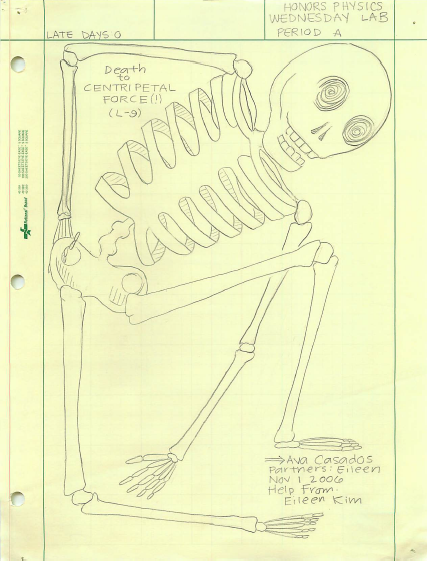 HONORS PHYSICS
WEDNESDAY LAB
LATE DAYS 0
PERIOD A
Death
to
CENTRIPETAL
FORCE(!)
(L-9)
→Ava Casados
Partners: Eileen
Nov 1 2006
Help From:
Eileen Kim